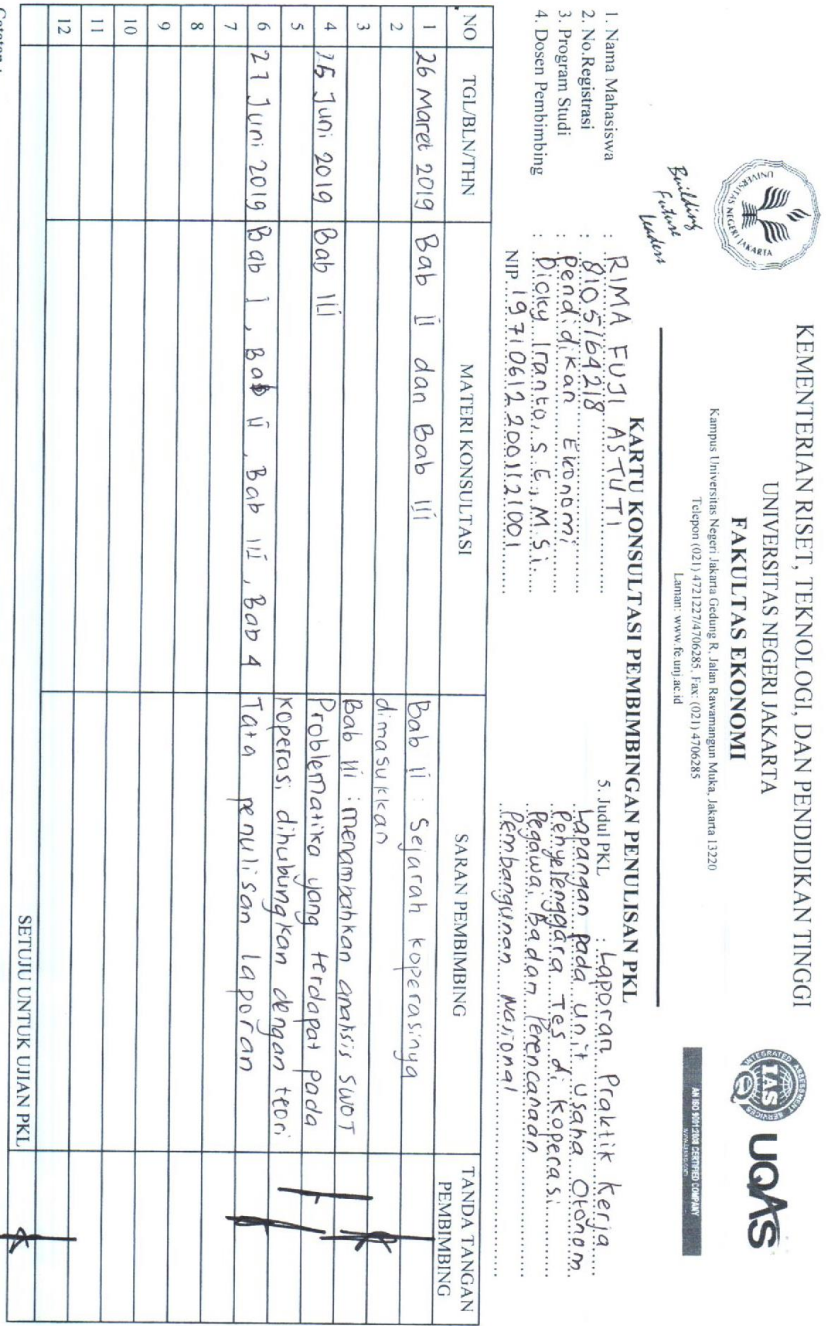 KEMENTERIAN RISET, TEKNOLOGI, DAN PENDIDIKAN TINGGI
UNIVERSITAS NEGERI JAKARTA
FAKULTAS EKONOMI
Kampus Universitas Negeri Jakarta Gedung R, Jalan Rawamangun Muka, Jakarta 13220
Telepon (021) 4721227/4706285, Fax: (021) 4706285
Laman: www.fe.unj.ac.id
UNIVERSITAS NEGERI JAKARTA
Building
Future
Leaders
INTEGRATED ASSESSMENT SERVICES
IAS
UQAS
AN ISO 9001:2008 CERTIFIED COMPANY
KARTU KONSULTASI PEMBIMBINGAN PENULISAN PKL
1. Nama Mahasiswa : RIMA FUJI ASTUTI
2. No.Registrasi : 8105164218
3. Program Studi : Pendidikan Ekonomi
4. Dosen Pembimbing : Dicky Iranto, S.E., M.Si.
NIP. 197106122001121001
5. Judul PKL : Laporan Praktik Kerja
Lapangan pada Unit Usaha Otonom
Penyelenggara Tes di Koperasi
Pegawai Badan Perencanaan
Pembangunan Nasional
NO TGL/BLN/THN MATERI KONSULTASI SARAN PEMBIMBING TANDA TANGAN PEMBIMBING
1 26 Maret 2019 Bab II dan Bab III Bab II : Sejarah koperasinya
2 dimasukkan
3 Bab III : menambahkan analisis SWOT
4 25 Juni 2019 Bab III Problematika yang terdapat pada
5 koperasi dihubungkan dengan teori
6 27 Juni 2019 Bab I, Bab II, Bab III, Bab 4 Tata penulisan laporan
7
8
9
10
11
12
SETUJU UNTUK UJIAN PKL
Catatan :